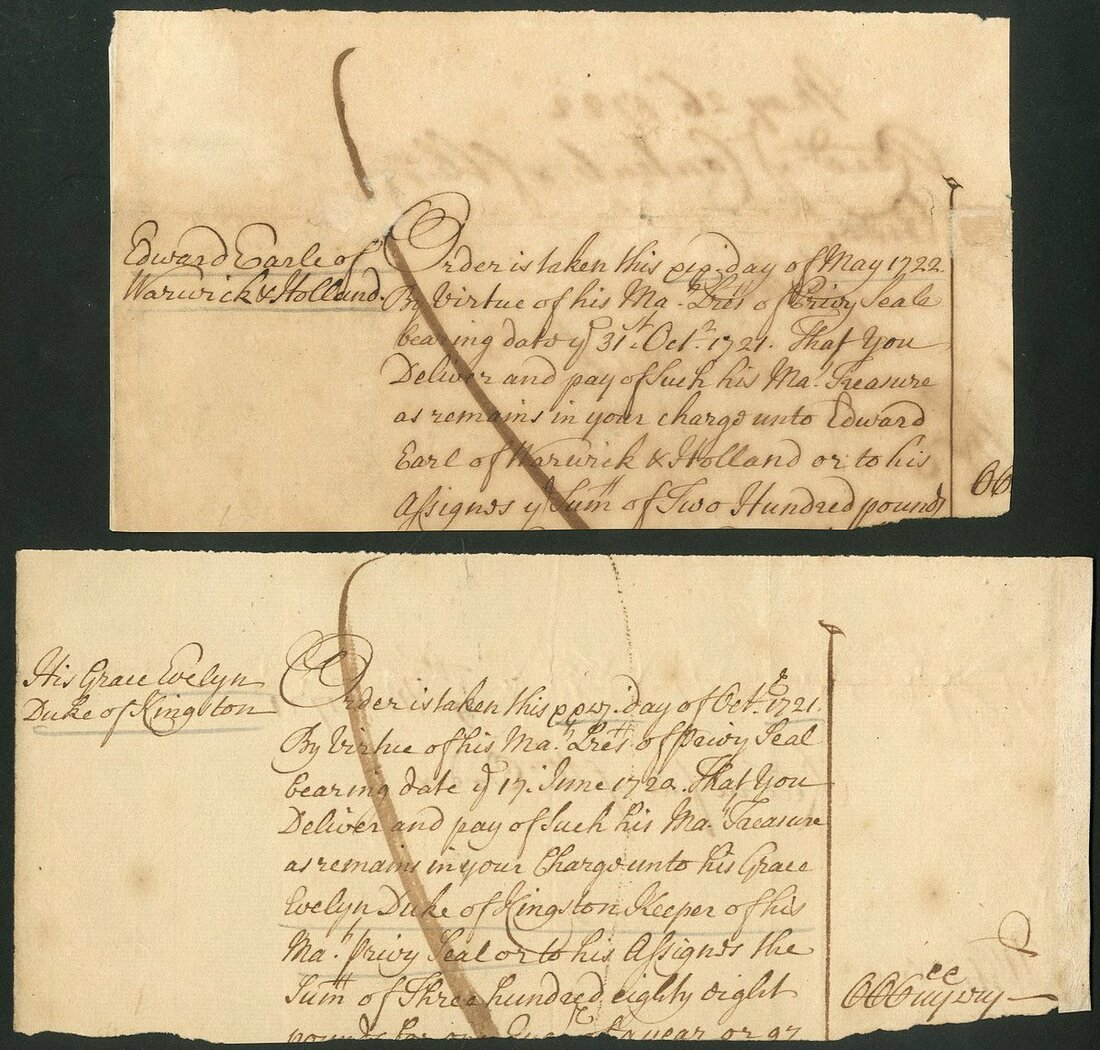 May 26 1722
Edward Earle of
Warwick & Holland.
Order is taken this xix. day of May 1722
By Virtue of his Ma.ts Lres of Privy Seale
bearing date ye 31st Oct.r 1721. That You
Deliver and pay of Such his Ma.ts Treasure
as remains in your charge unto Edward
Earl of Warwick & Holland or to his
Assignes ye Sum̃ of Two Hundred pounds
CC
His Grace Evelyn
Duke of Kingston
Order is taken this xxvij. day of Oct.r 1721.
By Virtue of his Ma.ts Lres of Privy Seal
bearing date ye 17. June 1720. That You
Deliver and pay of Such his Ma.ts Treasure
as remains in your Charge unto his Grace
Evelyn Duke of Kingston Keeper of his
Ma.ts Privy Seal or to his Assignes the
Sum̃ of Three hundred eighty eight
pounds for one Quar of a year or 97